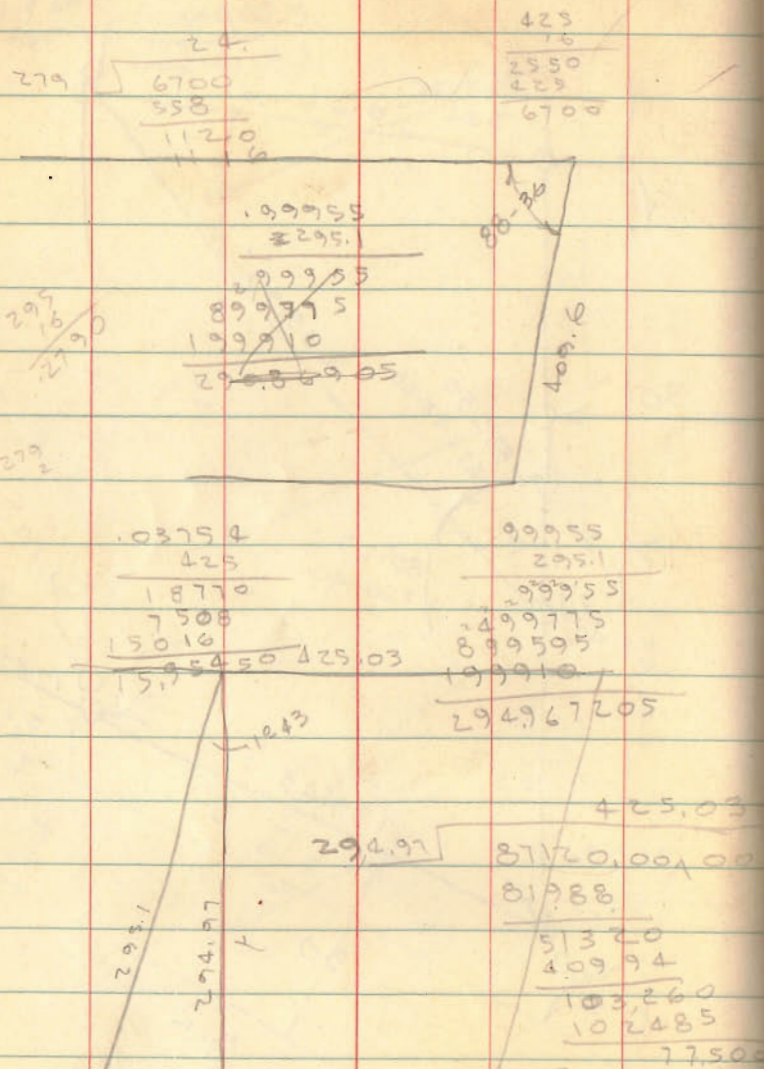 24.
279
6700
558
1120
1116
425
16
2550
425
6700
88-36
409.6
.99955
295.1
99955
899975
199910
295
16
2790
279
2
.03754
425
18770
7508
15016
15,95450
425.03
99955
295.1
99955
499775
899595
199910
294967205
1°43
295.1
294.97
425.03
294.97
87120.00
81988
51320
40994
103,260
102485
77,500